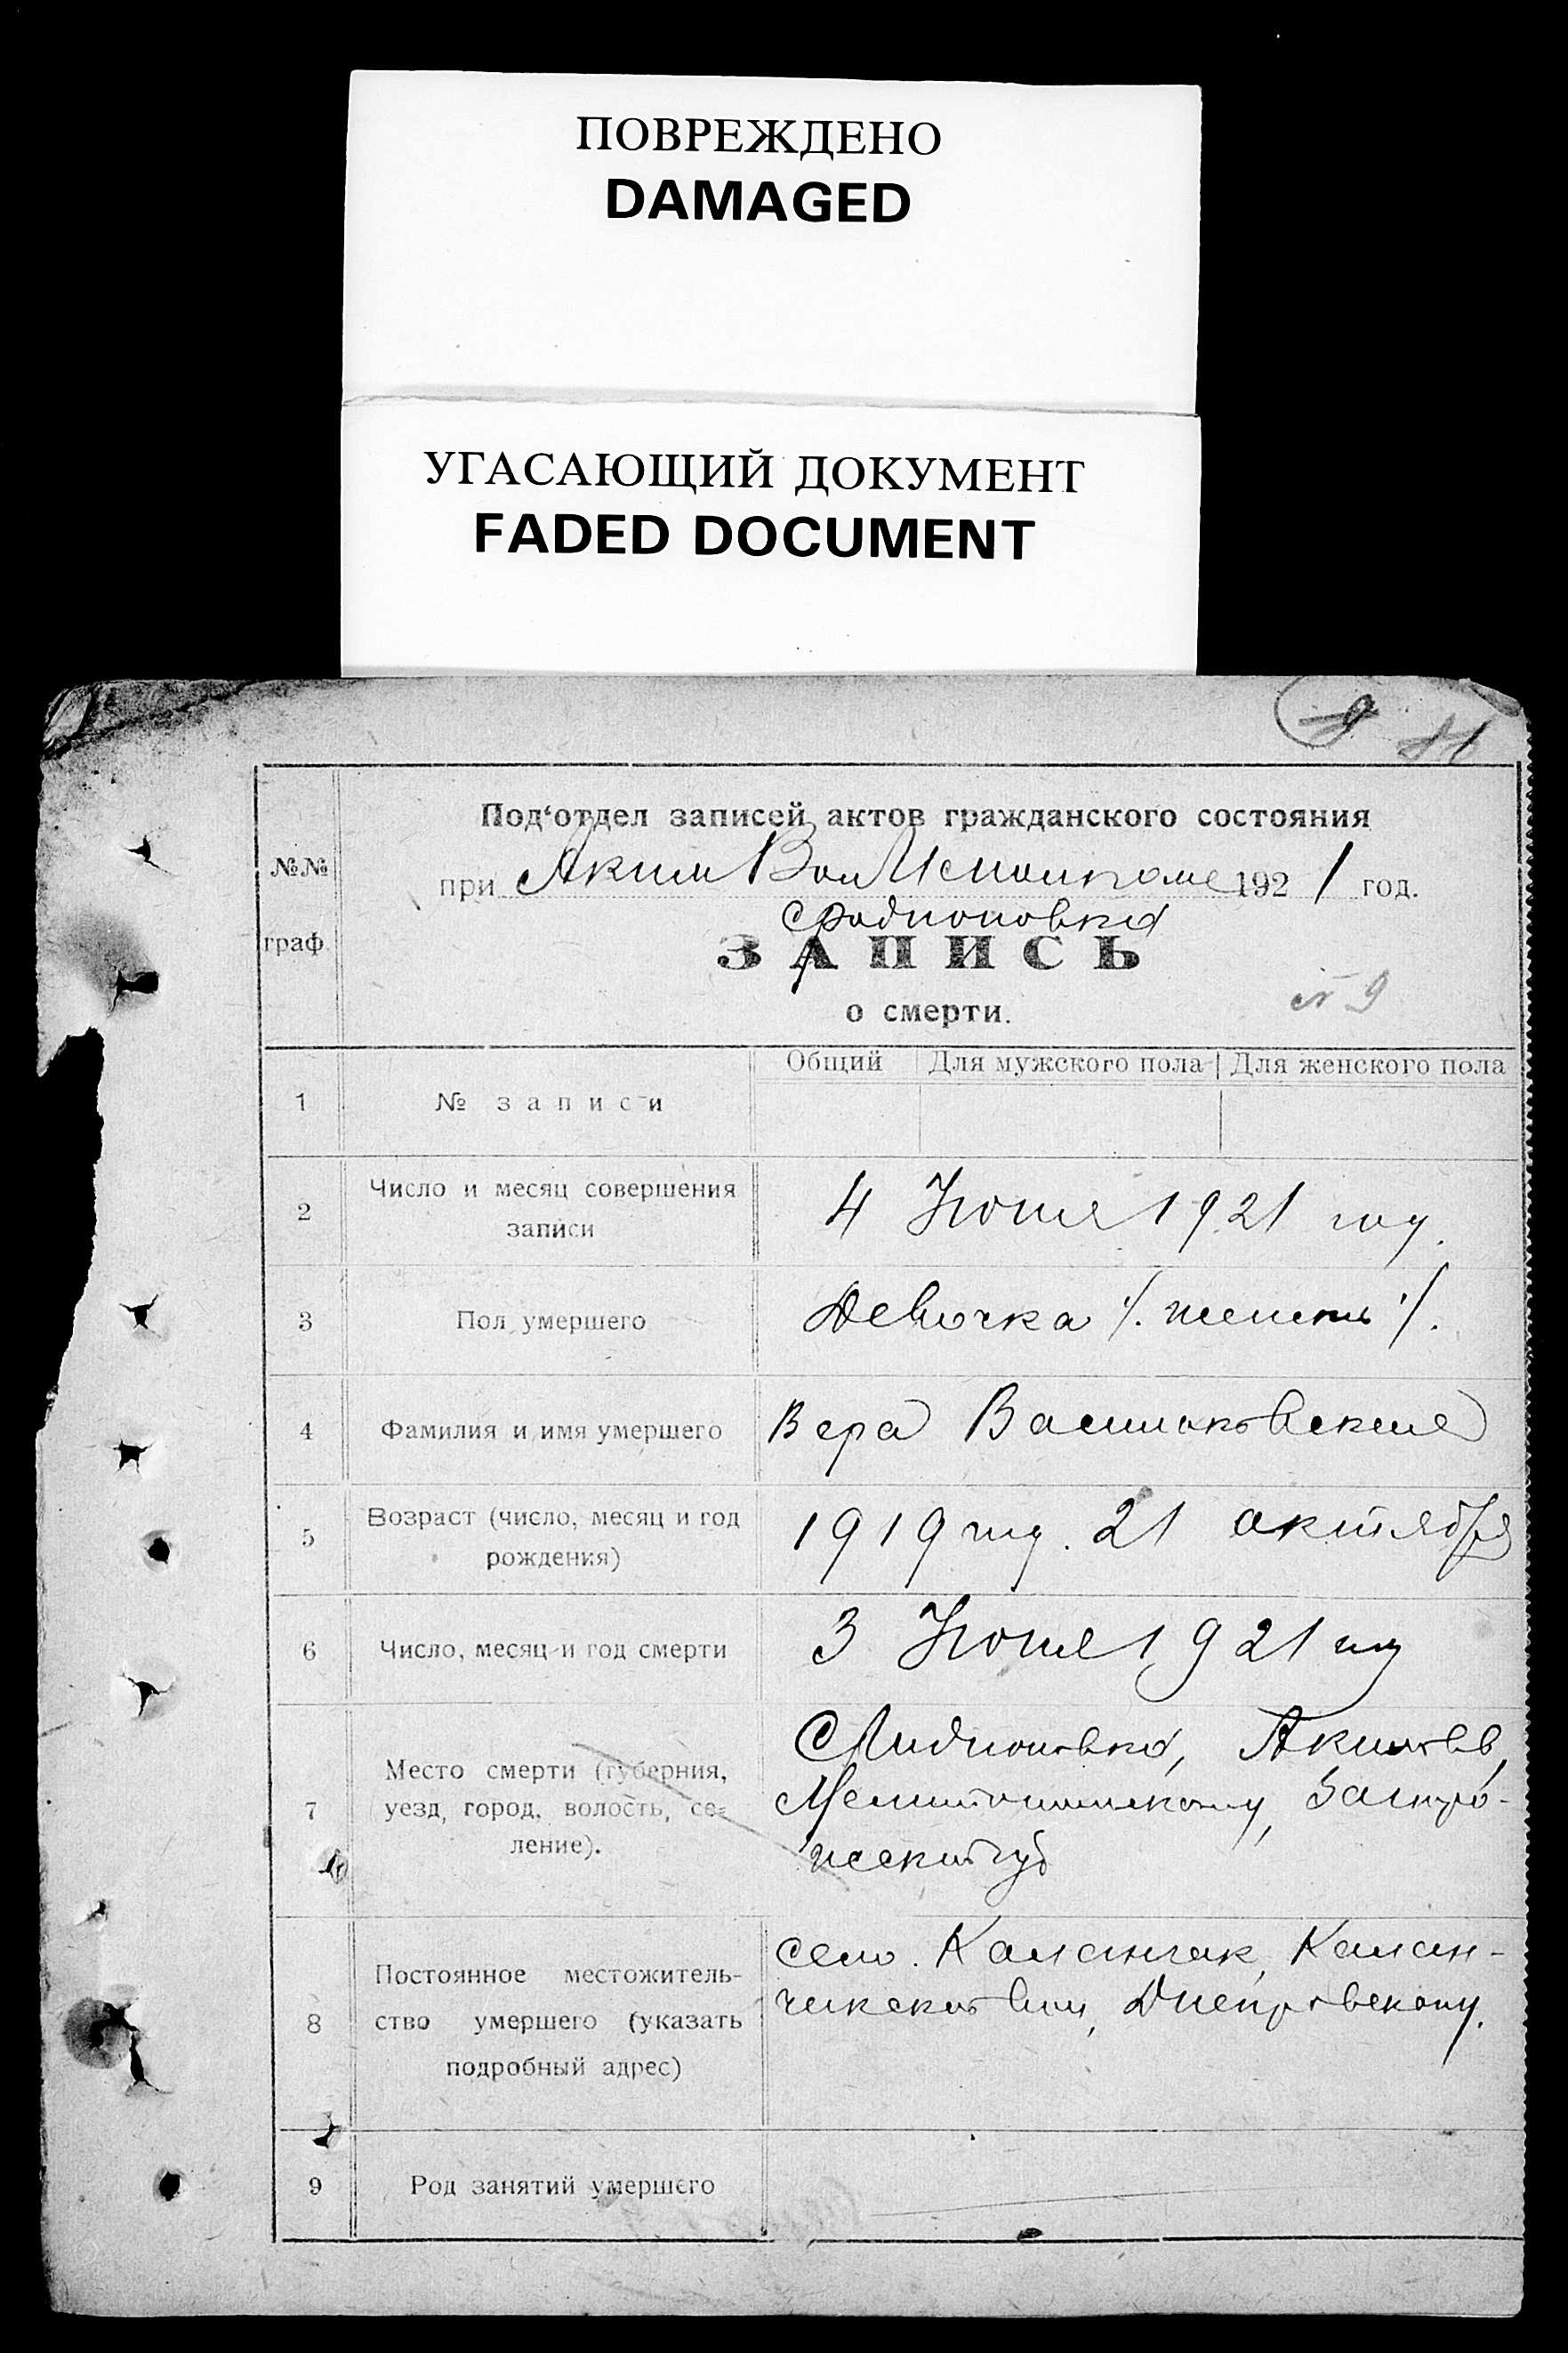 ПОВРЕЖДЕНО
DAMAGED
УГАСАЮЩИЙ ДОКУМЕНТ
FADED DOCUMENT
№№
граф.
Под‘отдел записей актов гражданского состояния
при Аким Вол Исполкоме 1921 год.
с Родионовка
ЗАПИСЬ
о смерти.
№ 9
Общий Для мужского пола Для женского пола
1 № записи
2 Число и месяц совершения
записи
4 Июня 1921 году.
3 Пол умершего
Девочка /. женск ./.
4 Фамилия и имя умершего
Вера
5 Возраст (число, месяц и год
рождения)
1919 год. 21 октября
6 Число, месяц и год смерти
3 Июня 1921 год
7 Место смерти (губерния,
уезд, город, волость, се-
ление).
Мелитопольскому, Запоро-
жской губ
8 Постоянное местожитель-
ство умершего (указать
подробный адрес)
село. Каланчак, Калан-
чакской вол, Днепровскому.
9 Род занятий умершего